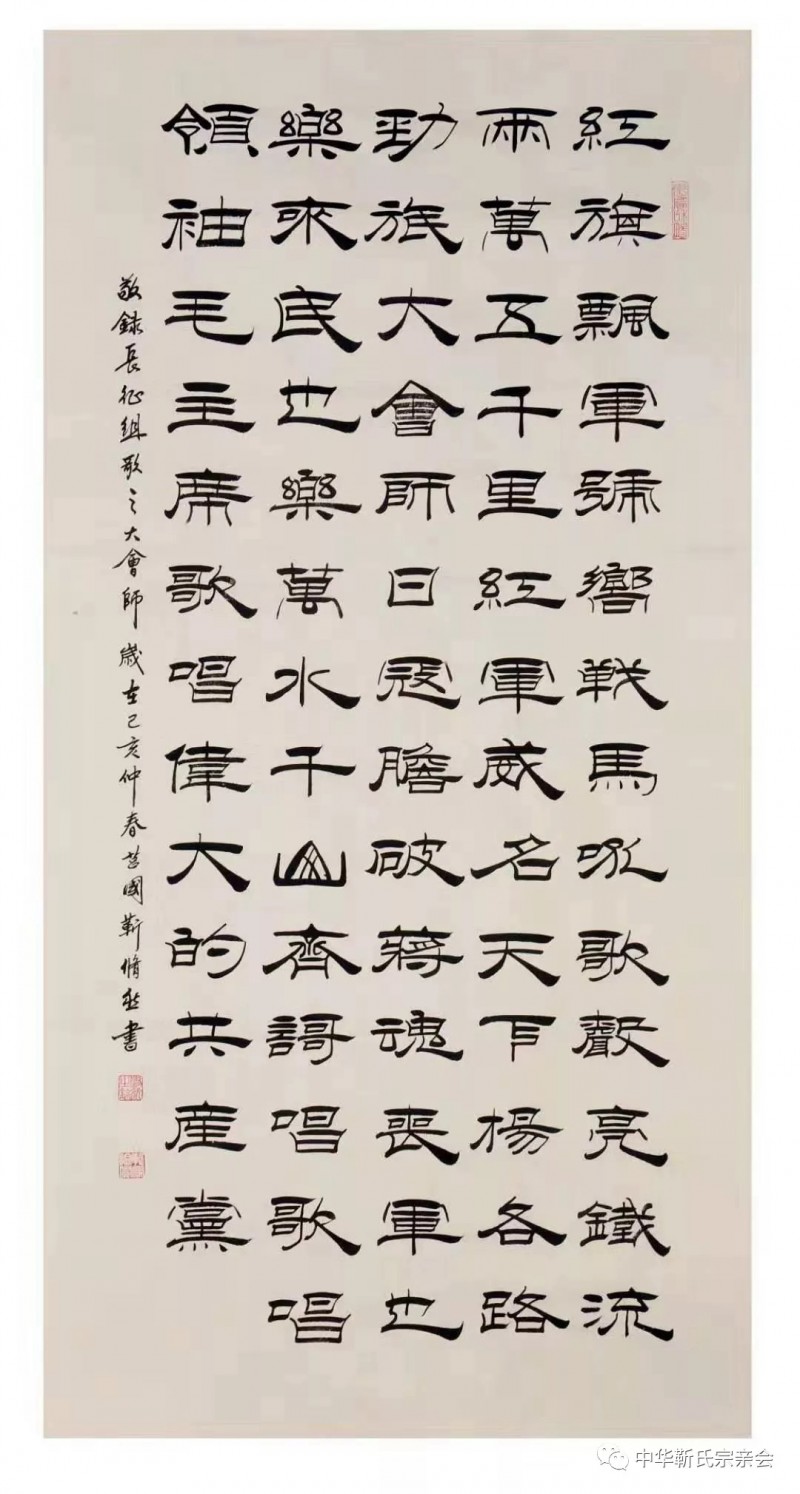 紅旗飄軍號響戰馬吼歌聲亮鐵流
兩萬五千里紅軍威名天下楊各路
勁旅大會師日寇膽破蔣魂喪軍也
樂來民也樂萬水千山齊謌唱歌唱
領袖毛主席歌唱偉大的共産黨
敬録長征組歌之大會師 歲在己亥仲春莒國靳脩書
中华靳氏宗亲会